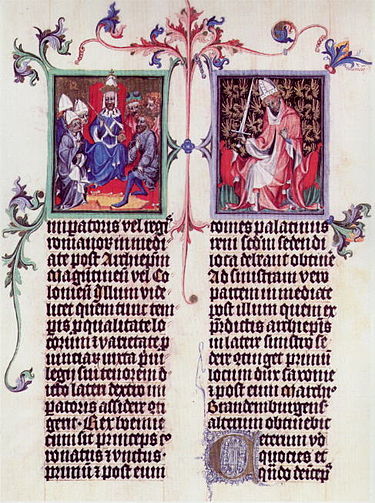 impatoris vel regis
romanorum inmedi
ate post Archiepm
maguntinen vel Co
lonien Illum vide
licet quem tunc tem
pris p qualitate lo
corum et varietate p
uinciarum iuxta priui
legii sui tenorem
lateri dextro im
patoris assidere cti
gerit. Rex boemie
cum sit princeps co
ronatus et vnctus.
primum et post eum
comes palatinus
reni sedm sedendi
loca debeant obtine
Ad sinistram vero
partem inmediate
post illum quem ex
pdictis archiepis
in latere sinistro se
dere ctinget primum
locum dux saxonie
et post eum marchio
Brandemburgen
alterum obtinebit
Ceterum vo
quocies et
qndo deincep